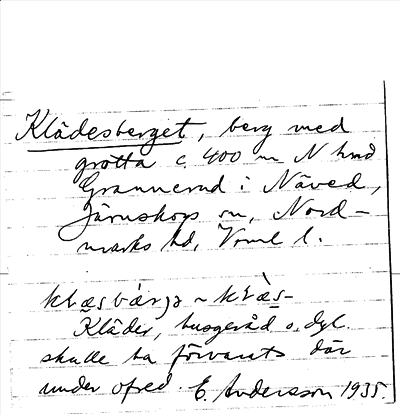 Klädesberget, berg med
grotta c. 400 m N
Grannerud i Näved,
Järnskogs sn, Nord-
marks hd, Vrml l.
Kläder, husgeråd o. dyl.
skulle ha förvarats där
under ofred. E. Andersson 1935.